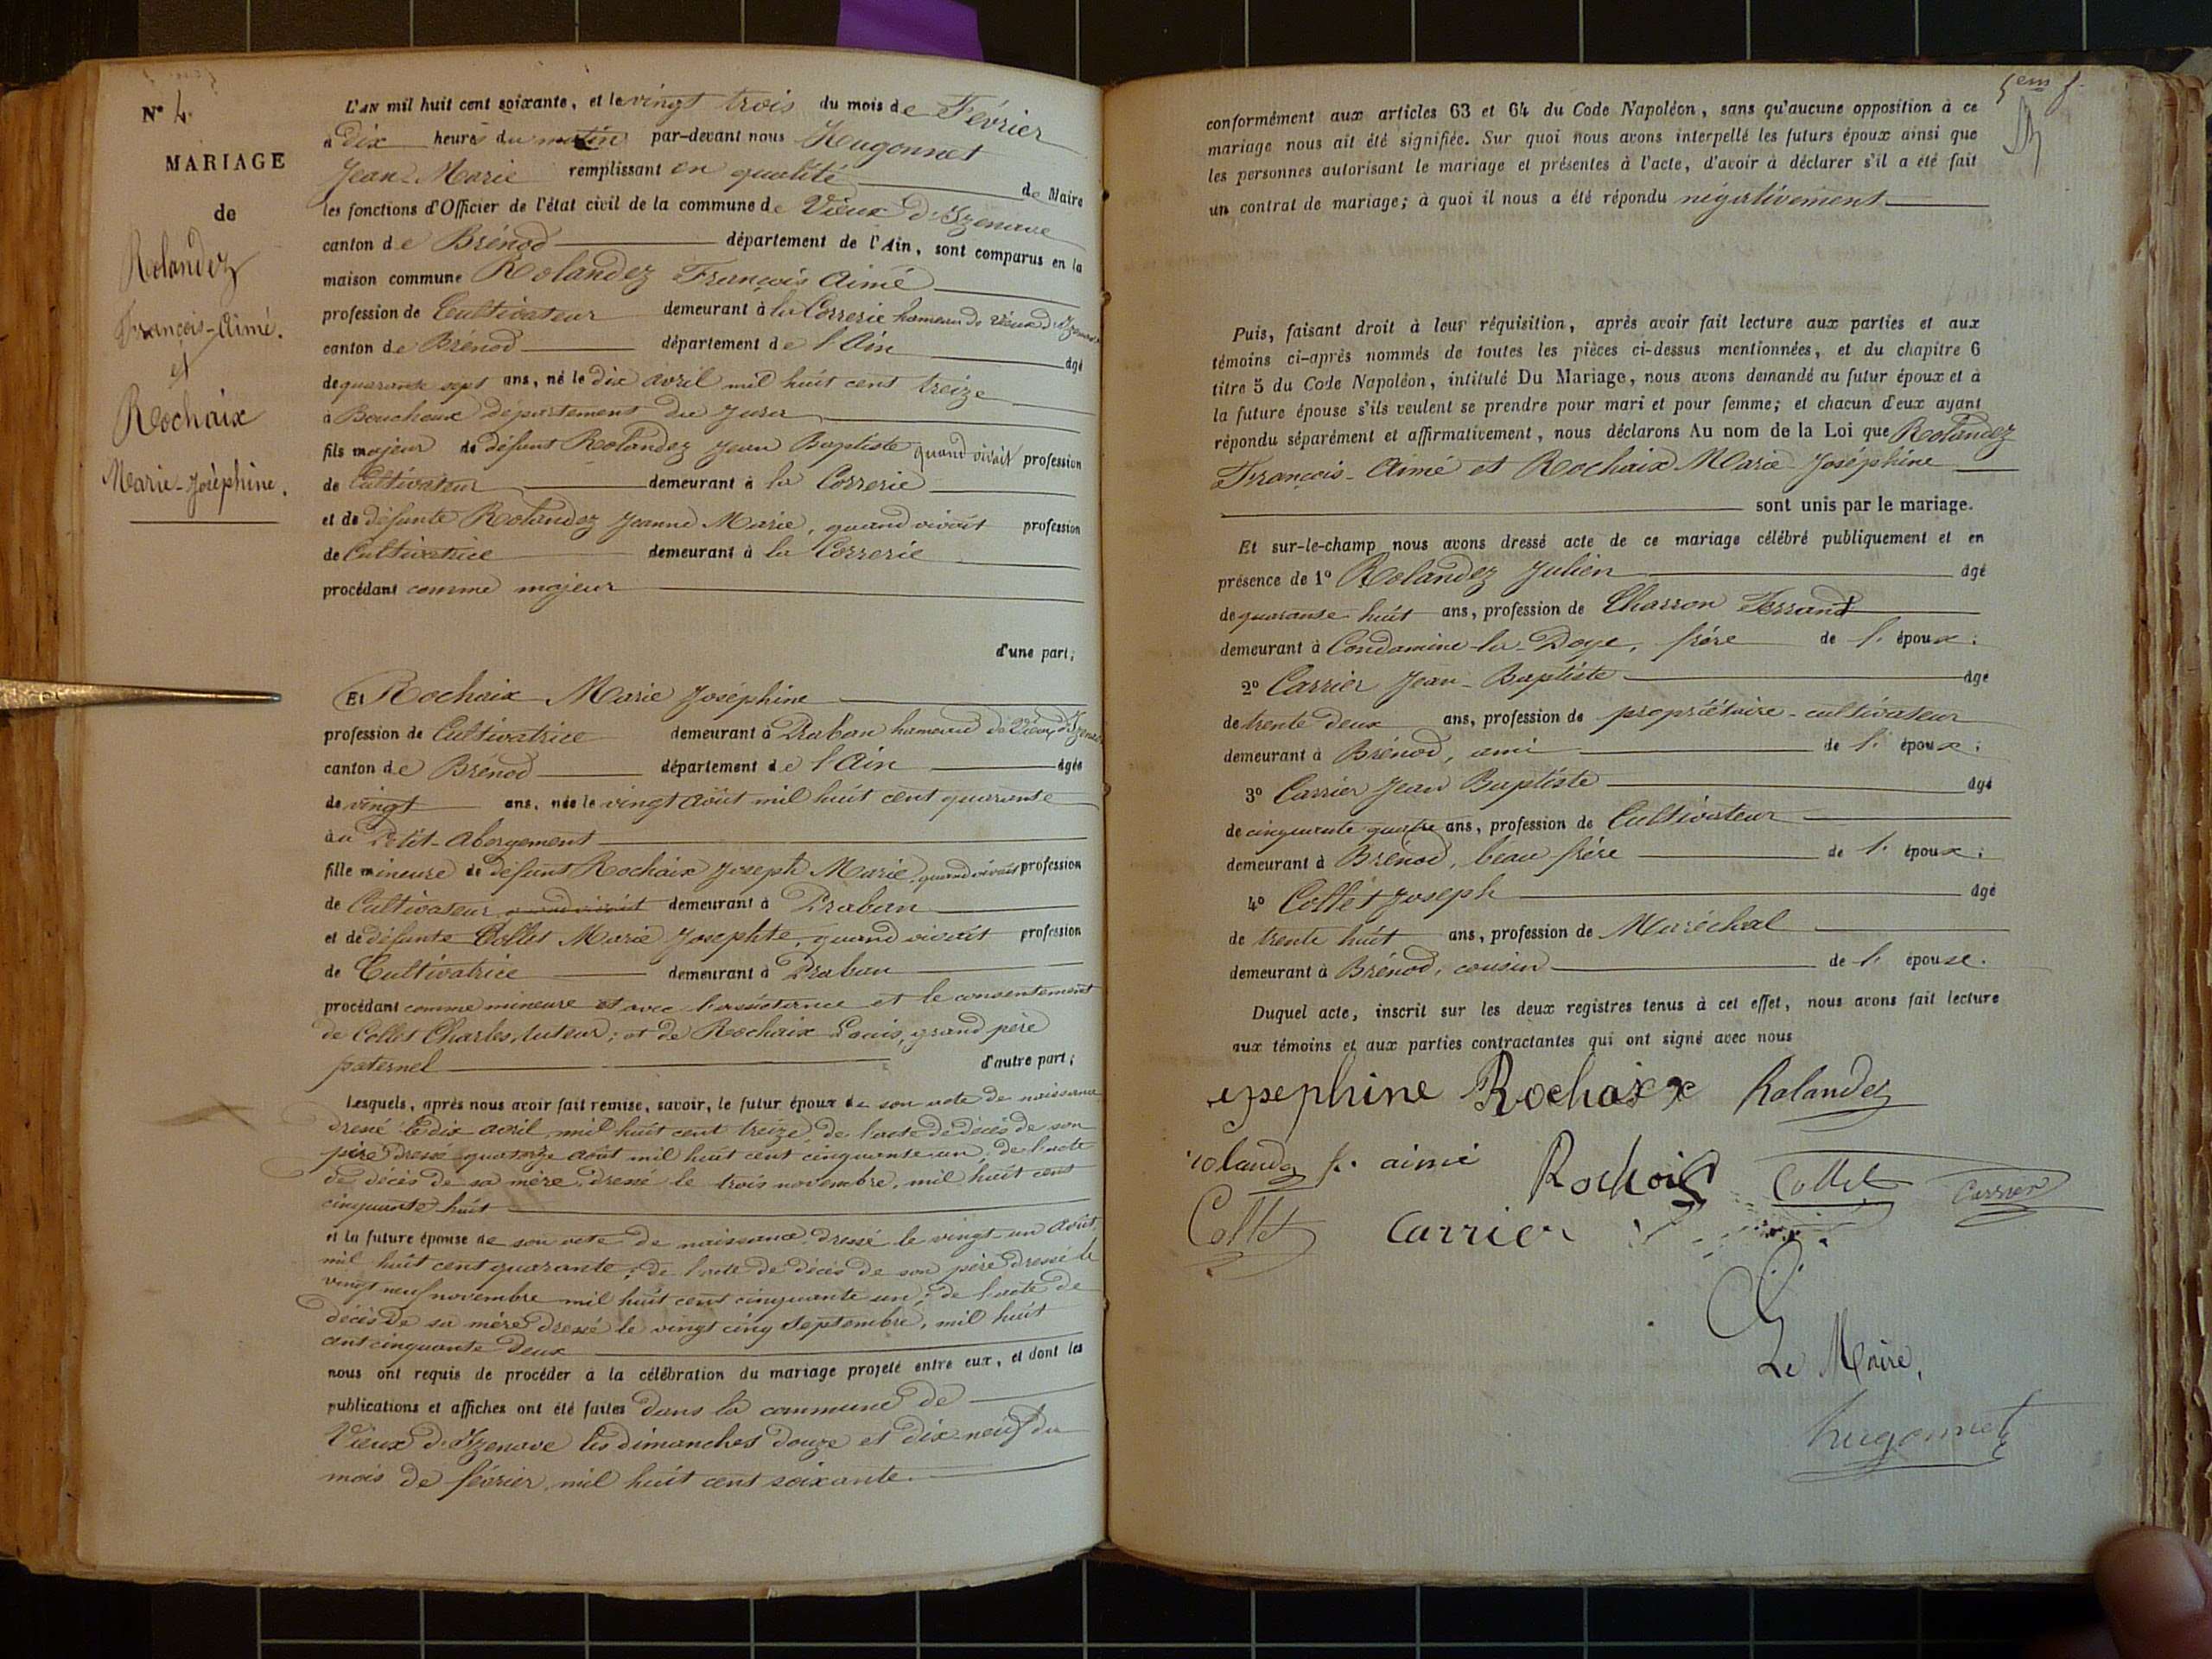 N° 4.
MARIAGE
de
Rolandez
François-Aimé.
et
Rochaix
Marie-Joséphine.
L'AN mil huit cent soixante, et le vingt trois du mois de Février
à dix heures du matin par-devant nous Hugonnet
Jean-Marie remplissant en qualité de Maire
les fonctions d'Officier de l'état civil de la commune de Vieux d'Izenave
canton de Brénod département de l'Ain, sont comparus en la
maison commune Rolandez François Aimé
profession de Cultivateur demeurant à la Correrie hameau de Vieux d'Izenave
canton de Brénod département de l'Ain âgé
de quarante sept ans, né le dix avril mil huit cent treize
à Bouchoux département du Jura
fils majeur de défunt Rolandez Jean Baptiste quand vivait profession
de Cultivateur demeurant à la Correrie
et de défunte Rolandez Jeanne Marie, quand vivait profession
de Cultivatrice demeurant à la Correrie
procédant comme majeur
d'une part;
Et Rochaix Marie Joséphine
profession de Cultivatrice demeurant à Praban hameau de Vieux d'Izenave
canton de Brénod département de l'Ain âgée
de vingt ans, née le vingt août mil huit cent quarante
au Petit-Abergement
fille mineure de défunt Rochaix Joseph Marie, quand vivait profession
de Cultivateur quand vivait demeurant à Praban
et de défunte Collet Marie Josephte, quand vivait profession
de Cultivatrice demeurant à Praban
procédant comme mineure et avec l'assistance et le consentement
de Collet Charles, tuteur; et de Rochaix Louis, grand père
paternel d'autre part;
Lesquels, après nous avoir fait remise, savoir, le futur époux de son acte de naissance
dressé le dix avril mil huit cent treize, de l'acte de décès de son
père dressé quatorze août mil huit cent cinquante un, de l'acte
de décès de sa mère, dressé le trois novembre, mil huit cent
cinquante huit
et la future épouse de son acte de naissance, dressé le vingt-un août,
mil huit cent quarante; de l'acte de décès de son père dressé le
vingt neuf novembre mil huit cent cinquante un; de l'acte de
décès de sa mère dressé le vingt cinq Septembre, mil huit
cent cinquante deux
nous ont requis de procéder à la célébration du mariage projeté entre eux, et dont les
publications et affiches ont été faites dans la commune de
Vieux d'Izenave les dimanches douze et dix-neuf du
mois de février mil huit cent soixante
5em f.
conformément aux articles 63 et 64 du Code Napoléon, sans qu'aucune opposition à ce
mariage nous ait été signifiée. Sur quoi nous avons interpellé les futurs époux ainsi que
les personnes autorisant le mariage et présentes à l'acte, d'avoir à déclarer s'il a été fait
un contrat de mariage; à quoi il nous a été répondu négativement
Puis, faisant droit à leur réquisition, après avoir fait lecture aux parties et aux
témoins ci-après nommés de toutes les pièces ci-dessus mentionnées, et du chapitre 6
titre 5 du Code Napoléon, intitulé Du Mariage, nous avons demandé au futur époux et à
la future épouse s'ils veulent se prendre pour mari et pour femme; et chacun d'eux ayant
répondu séparément et affirmativement, nous déclarons Au nom de la Loi que Rolandez
François-Aimé et Rochaix Marie-Joséphine
sont unis par le mariage.
Et sur-le-champ nous avons dressé acte de ce mariage célébré publiquement et en
présence de 1° Rolandez Julien âgé
de quarante huit ans, profession de Charron Ferrand
demeurant à Condamine-la-Doye, frère de l' époux;
2° Carrier Jean-Baptiste âgé
de trente deux ans, profession de propriétaire-cultivateur
demeurant à Brénod, ami de l' époux;
3° Carrier Jean Baptiste âgé
de cinquante quatre ans, profession de Cultivateur
demeurant à Brénod, beau frère de l' époux;
4° Collet Joseph âgé
de trente huit ans, profession de Maréchal
demeurant à Brénod, cousin de l' épouse.
Duquel acte, inscrit sur les deux registres tenus à cet effet, nous avons fait lecture
aux témoins et aux parties contractantes qui ont signé avec nous
josephine Rochaix Rolandez
rolandez f. aimé Rochaix Collet Carrier
Collet Carrier
Le Maire,
hugonnet